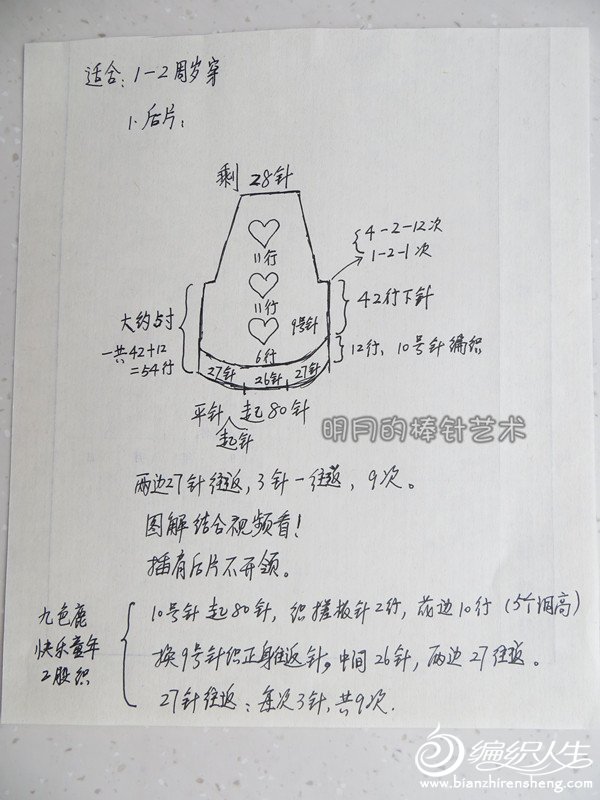 适合:1-2周岁穿
1.后片:
剩28针
4-2-12次
1-2-1次
11行
11行
9号针
42行下针
大约5寸
一共42+12
=54行
6行
12行,10号针编织
27针 26针 27针
平针 起80针
起针
明月的棒针艺术
两边27针往返,3针一往返,9次。
图解结合视频看!
插肩后片不开领。
九色鹿
快乐童年
2股织
10号针起80针,织搓板针2行,花边10行(5个洞高)
换9号针织正身往返针。中间26针,两边27往返。
27针往返:每次3针,共9次.
编织人生
www.bianzhirensheng.com